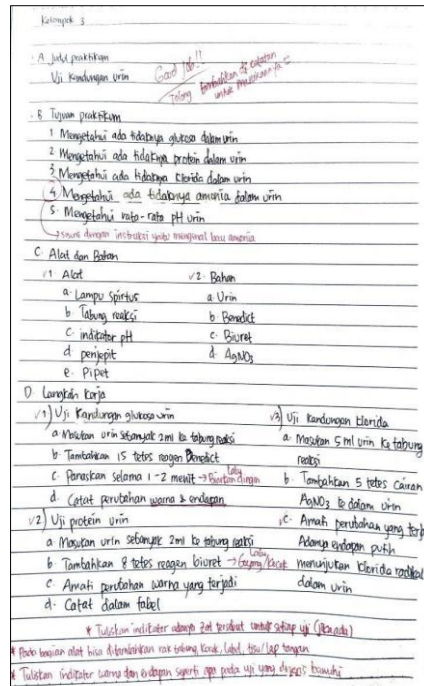 Kelompok 3
A. Judul praktikum
Uji Kandungan urin
Good job!!
Tolong tambahkan di catatan
untuk
B. Tujuan praktikum
1 Mengetahui ada tidaknya glukosa dalam urin
2 Mengetahui ada tidaknya protein dalam urin
3 Mengetahui ada tidaknya klorida dalam urin
4 Mengetahui ada tidaknya amonia dalam urin
5. Mengetahui rata-rata pH urin
→ sesuai dengan instruksi yaitu mengenal bau amonia
C. Alat dan Bahan
√1 Alat
a. Lampu Spirtus
b. Tabung reaksi
c. indikator pH
d. penjepit
e. Pipet
√2. Bahan
a. Urin
b. Benedict
c. Biuret
d. AgNO3
D. Langkah Kerja
√1) Uji Kandungan glukosa urin
a. Masukan urin sebanyak 2ml ke tabung reaksi
b. Tambahkan 15 tetes reagen Benedict
c. Panaskan selama 1-2 menit → Lalu Biarkan dingin
d. Catat perubahan warna & endapan
√2) Uji protein urin
a. Masukan urin sebanyak 2ml ke tabung reaksi
b. Tambahkan 8 tetes reagen biuret → Lalu Goyang/Kocok
c. Amati perubahan warna yang terjadi
d. Catat dalam tabel
√3) Uji kandungan klorida
a. Masukan 5 ml urin ke tabung
reaksi
b. Tambahkan 5 tetes Cairan
AgNO3 ke dalam urin
c. Amati perubahan yang terj
Adanya endapan putih
menunjukan klorida radikal
dalam urin
* Tuliskan indikator adanya zat tersebut untuk setiap uji (jika ada)
* Pada bagian alat bisa ditambahkan rak tabung, kertas, label, tisu/lap tangan
* Tuliskan indikator warna dan endapan seperti apa pada uji yang